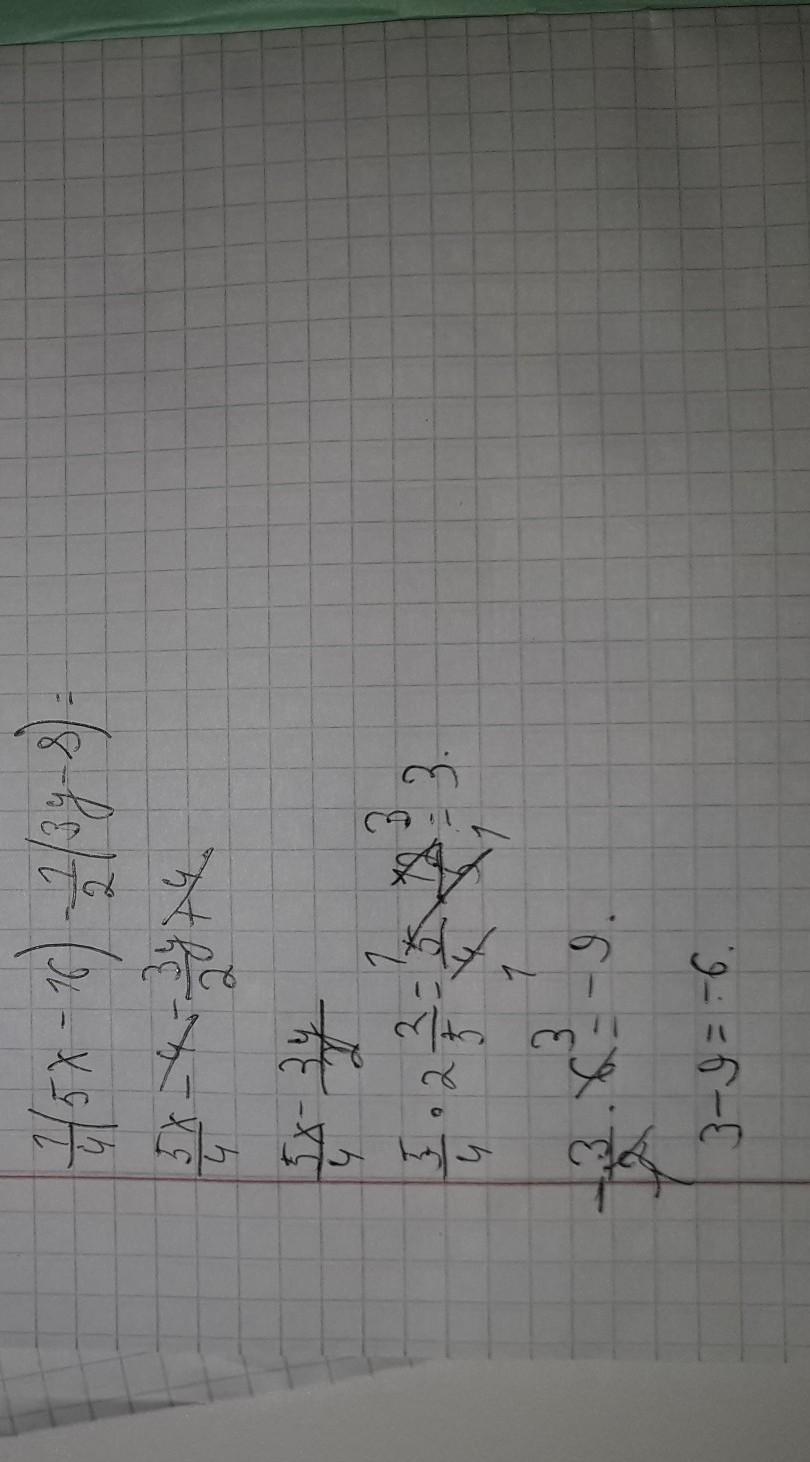 1/4(5x - 16) - 1/2(3y - 8) =
5x/4 - 4 - 3y/2 + 4
5x/4 - 3y/2
5/4 · 2 2/5 = 5/4 · 12/5 = 3.
-3/2 · 6 = -9.
3 - 9 = -6.